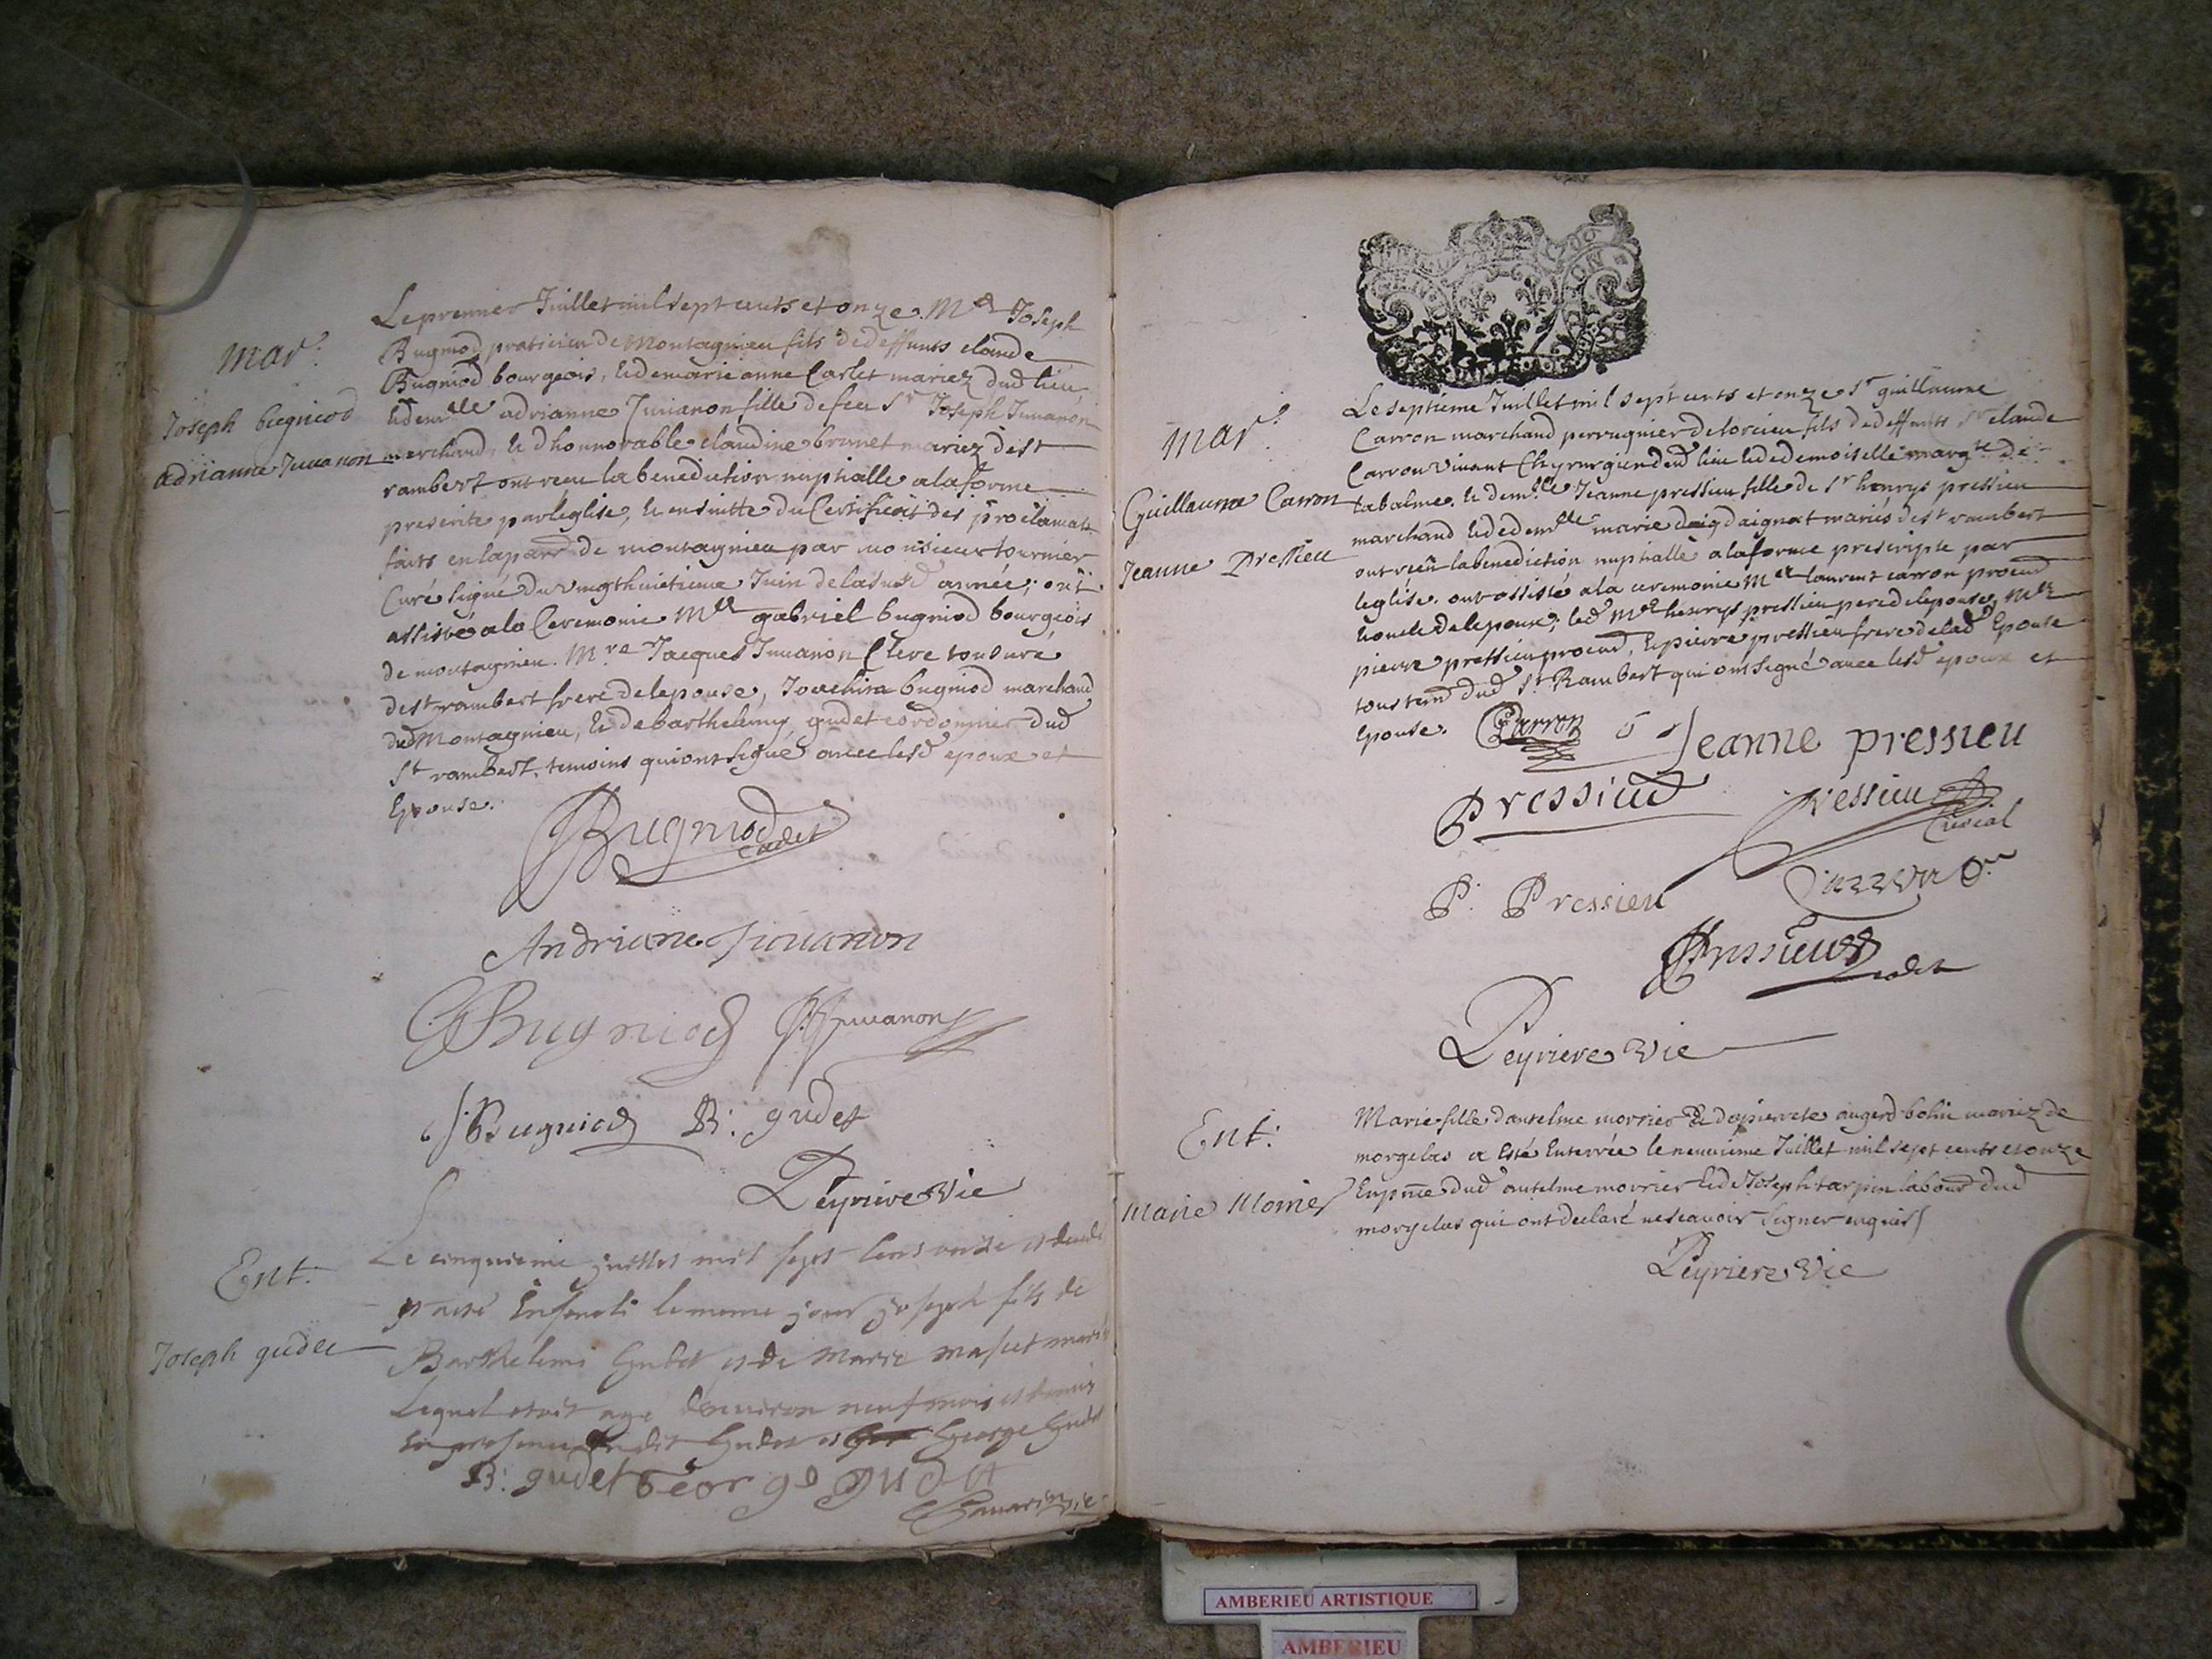 Mar.
Joseph bugniod
adrianne Juuanon
Le premier Juillet mil sept cents et onze. Mre Joseph
Bugniod praticien de Montagnieu fils de deffunts claude
Bugniod bourgeois, et de marie anne Carlet mariez dud lieu
et demlle adrianne Juuanon fille de feu Sr Joseph Juuanon
marchand, et d'honnorable claudine brunet mariez de st
rambert ont receu la benediction nuptialle a la forme
prescrite par leglise, et ensuitte du Certificat des proclamatt
faits en la parr de montagnieu par monsieur tournier
Curé signé du vingthuitieme Juin de la susd année; ont
assisté a la Ceremonie Mre gabriel bugniod bourgeois
de montagnieu. Mre Jacques Juuanon Clerc tonsuré
de st rambert frere de lepouse, Joachim bugniod marchand
dud Montagnieu, et de barthelemy gudet cordonnier dud
St rambert. temoins qui ont signé avec lesd epoux et
Epouse.
Bugniod
cadet
Andriane Jiouanon
G Bugniod Juuanon
J. Bugniod B: gudet
Peyriere Vic
Ent.
Joseph gudet
Le cinquieme juillet mil sept cens onze est decedé
et a été enseveli le meme jour joseph fils de
Barthelemi Gudet et de Marie mariés
Lequel etoit agé denviron neuf mois et demis
en presence dudit Gudet et George Gudet
B: gudet George gudet
vic
Mar.
Guillaume Carron
Jeanne Pressieu
Le septieme Juillet mil sept cents et onze Sr guillaume
Carron marchand perruquier de lorcieu fils de deffunts Sr claude
Carron vivant Chyrurgien dud lieu et de demoiselle margte de
labalme. et demlle Jeanne pressieu fille de Sr henrys pressieu
marchand et de demlle marie daignat mariés de st rambert
ont receü la benediction nuptialle a la forme prescripte par
leglise. ont assisté a la ceremonie Mre laurent carron procur
honcle de lepoux; led Mre henrys pressieu pere de lepouse, Mre
pierre pressieu procur, Et pierre pressieu frere de lad Epouse
tous tem dud St Rambert qui ont signé avec lesd epoux et
Epouse. Carron Jeanne pressieu
Pressieu Pressieu
P: Pressieu Carron
Pressieu
cadet
Peyriere Vic
Ent:
Marie Morrier
Marie fille d'anselme morrier et de pierrete mariez de
morgelas a Esté Enterrée le neuvieme Juillet mil sept cents et onze
En pnce dud anselme morrier Et de Joseph tarpin labour dud
morgelas qui ont declaré ne scavoir signer enquis
Peyriere Vic
AMBERIEU ARTISTIQUE
AMBERIEU